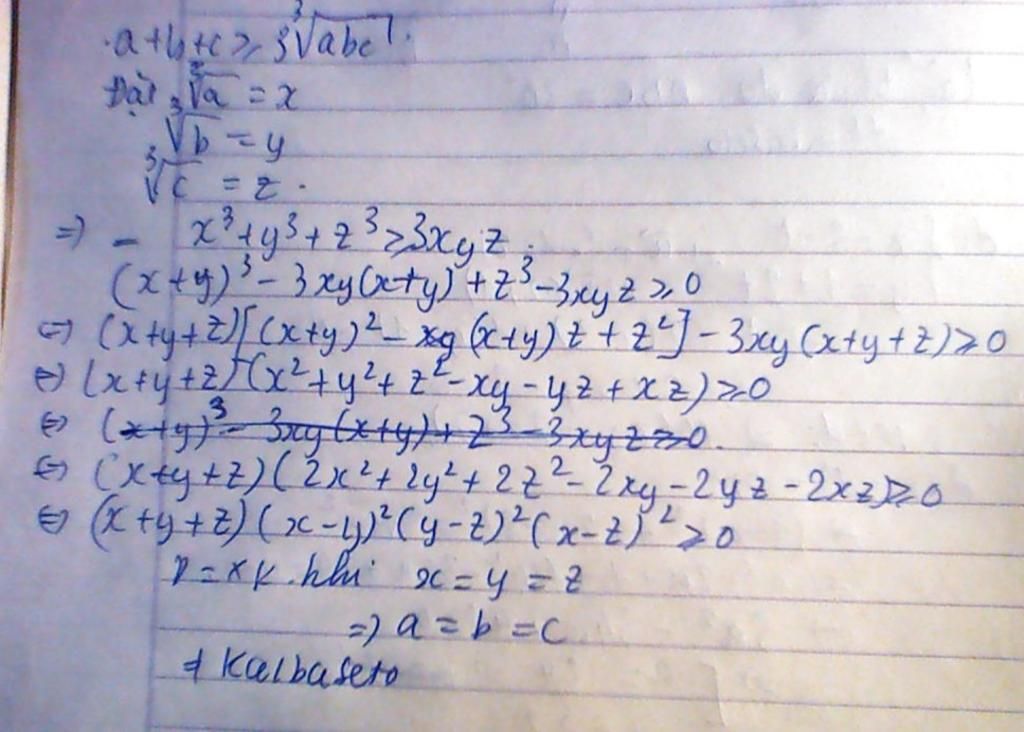 . a+b+c ≥ 3∛abc .
Đặt ∛a = x
∛b = y
∛c = z .
⇒) - x³+y³+z³ ≥ 3xyz .
(x+y)³ - 3xy(x+y) + z³ - 3xyz ≥ 0
⇔) (x+y+z)[(x+y)² - (x+y)z + z²] - 3xy(x+y+z) ≥ 0
⇔) (x+y+z)(x²+y²+z²-xy-yz+xz) ≥ 0
⇔) (x+y)³ - 3xy(x+y) + z³ - 3xyz ≥ 0.
⇔) (x+y+z)(2x²+2y²+2z²-2xy-2yz-2xz) ≥ 0
⇔) (x+y+z)(x-y)²(y-z)²(x-z)² ≥ 0
khi x = y = z
⇒) a = b = c
Kalbaseto